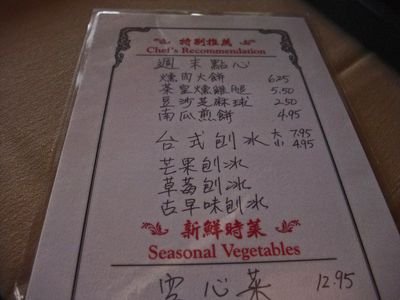 特別推薦
Chef's Recommendation
週末點心
燻肉大餅 6.25
茶皇燻雞腿 5.50
豆沙芝麻球 2.50
南瓜煎餅 4.95
台式刨冰 大 7.95
小 4.95
芒果刨冰
草莓刨冰
古早味刨冰
新鮮時菜
Seasonal Vegetables
空心菜 12.95